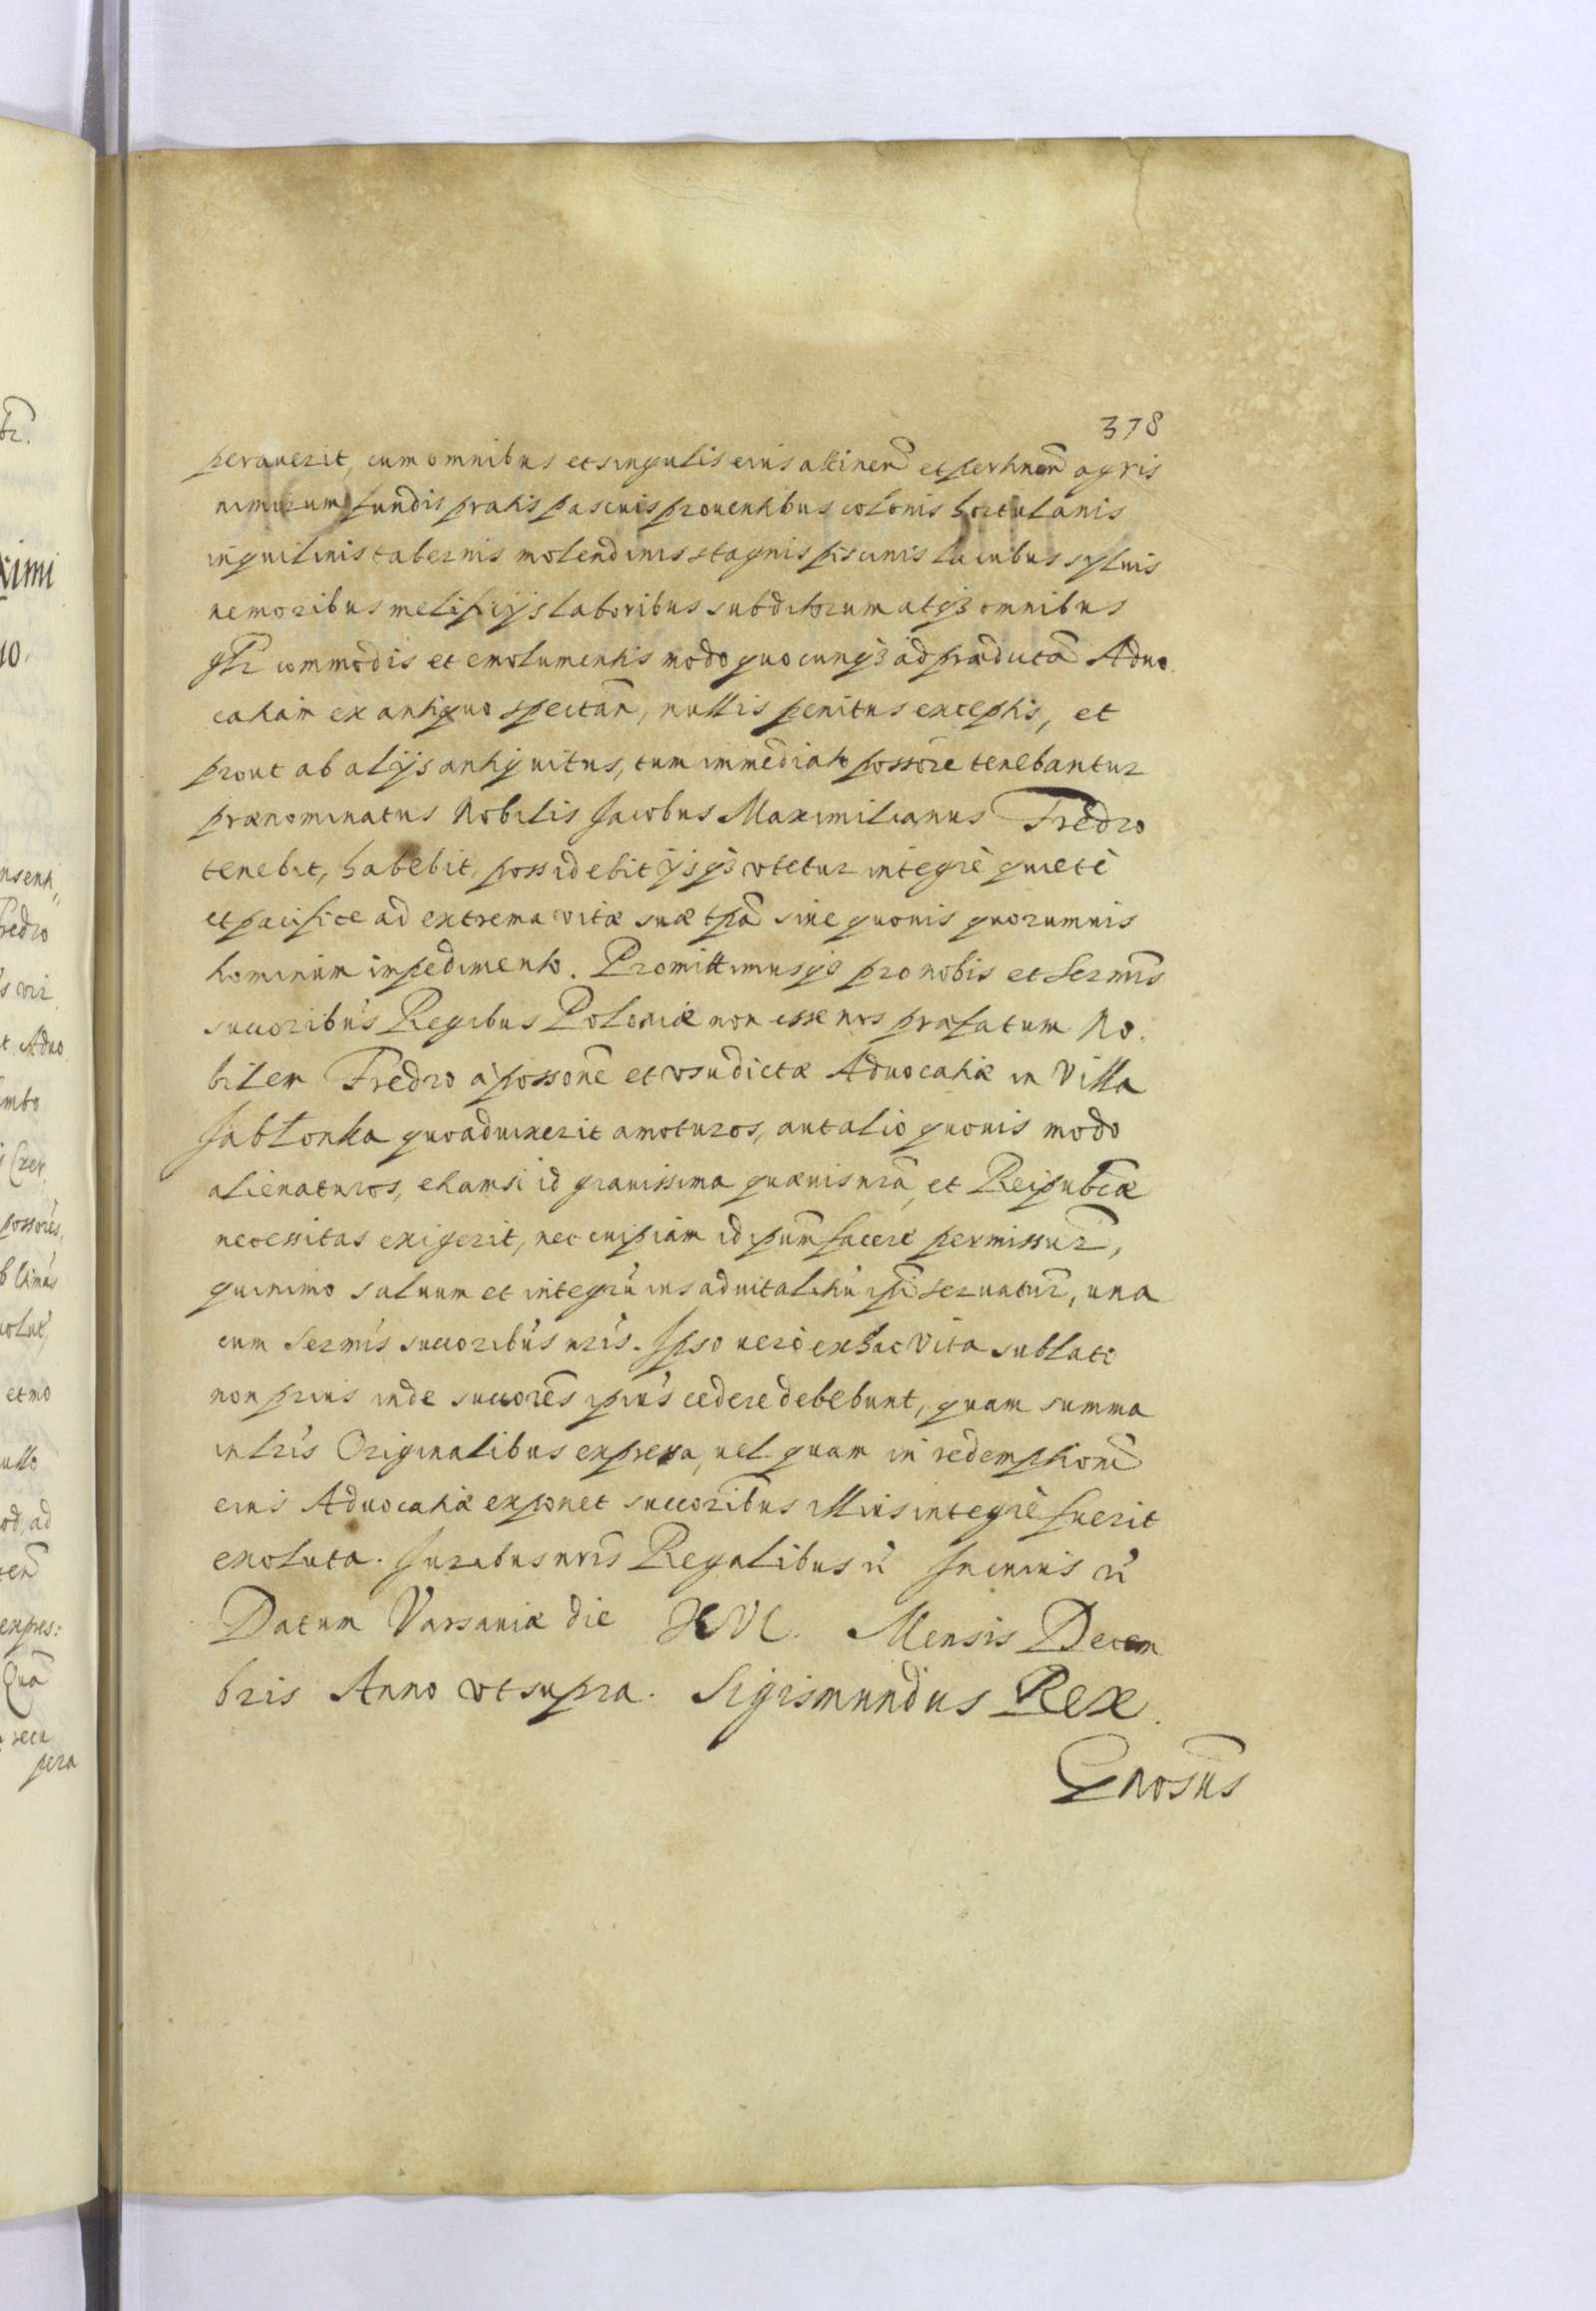 378
perauerit, cum omnibus et singulis eius attinen̄ et pertinen̄ agris
nimirum fundis pratis pascuis prouentibus colonis hortulanis
inquilinis tabernis molendinis stagnis piscinis lacubus syluis
nemoribus melificijs laboribus subditorum atq₃ omnibus
gñlr commodis et emolumentis modo quocunq₃ ad prædictā Aduo
catiam ex antiquo spectañ, nullis penitus exceptis, et
prout ab alijs antiquitus, tum immediato possore tenebantur
prænominatus Nobilis Jacobus Maximilianus Fredro
tenebit, habebit, possidebit ijsq₃ vtetur integrè quietè
et pacifice ad extrema vitæ suæ tpā sine quouis quorumuis
hominum impedimento. Promittimusq₃ pro nobis et Sermis
succoribus Regibus Poloniæ non esse nos præfatum No
bilem Fredro à possone et vsu dictæ Aduocatiæ in Villa
Jablonka quoad vixerit amoturos, aut alio quouis modo
alienaturos, etiamsi id grauissima quæuis nrā et Reipublcæ
necessitas exigerit, nec cuipiam id ipsum facere permissur̄,
quinimo saluum et integrū ius aduitalitiū ipsi seruatur̄, una
cum Sermis succoribus nris. Ipso uerò ex hac vita sublato
non prius inde succores ipius cedere debebunt, quam summa
in lris Originalibus expressa, uel quam in redemptionē
eius Aduocatiæ exponet succoribus illius integrè fuerit
exoluta. Juribus nris Regalibus ñ In cuius ñ
Datum Varsauiæ die XVI. Mensis Decem
bris Anno vt supra. Sigismundus Rex.
Gnosus